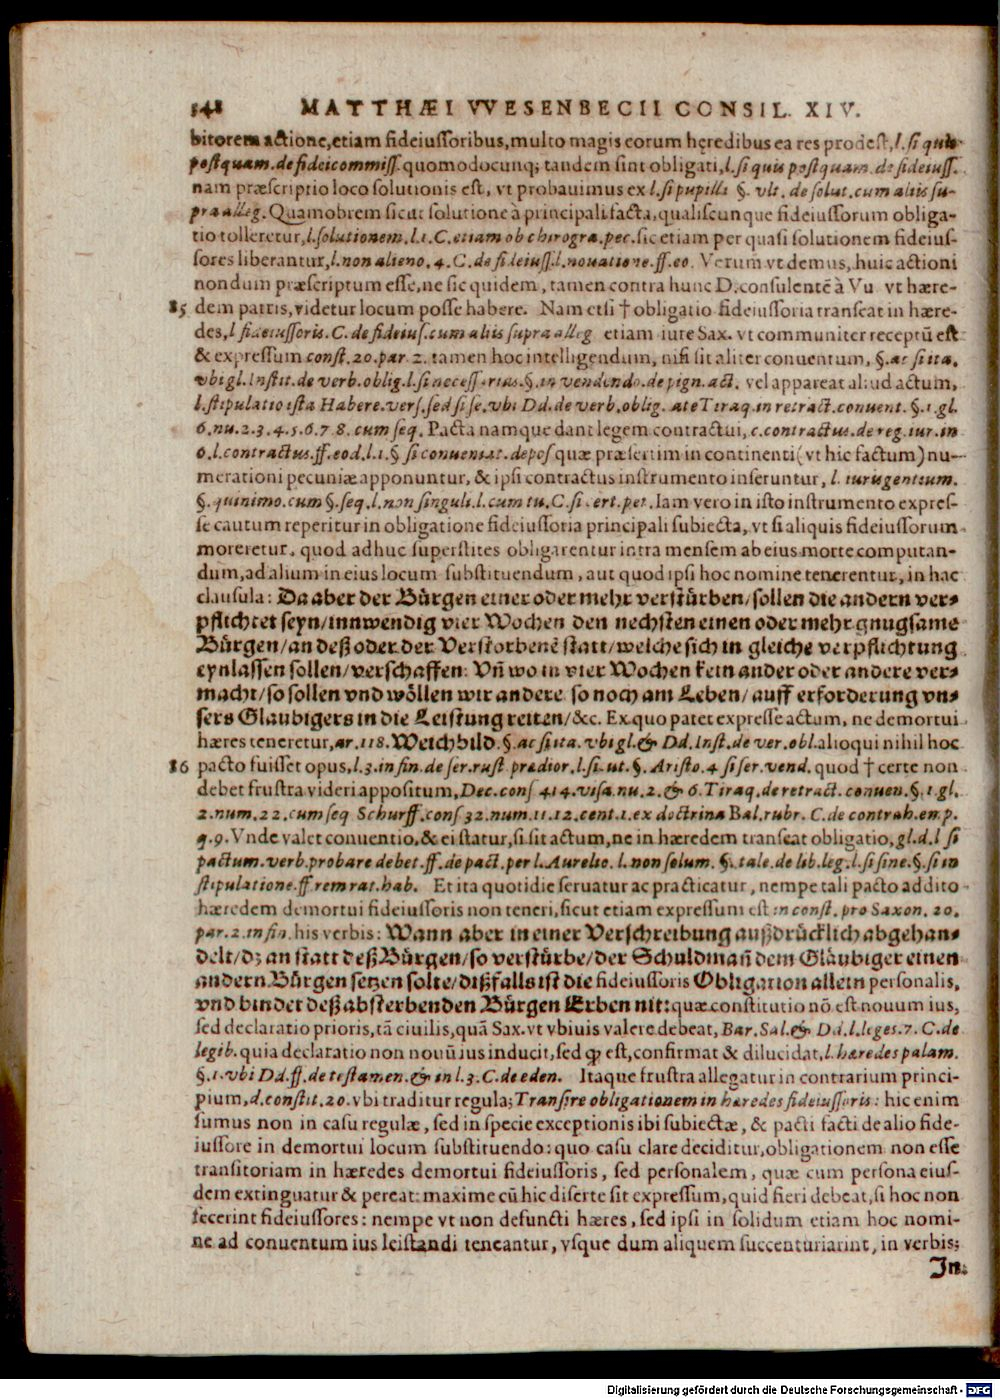 548 MATTHÆI VVESENBECII CONSIL. XIV.
bitorem actione, etiam fideiussoribus, multo magis eorum hęredibus ea res prodest, l. si quis
postquam. de fideicommiss. quomodocunq; tandem sint obligati, l. si quis postquam. de fideiuss.
nam præscriptio loco solutionis est, vt probauimus ex l. si pupilli §. vlt. de solut. cum aliis su-
pra alleg. Quamobrem sicut solutione à principali facta, qualiscunque fideiussorum obliga-
tio tolleretur, l. solutionem. l. 1. C. etiam ob chirogra. pec. sic etiam per quasi solutionem fideius-
sores liberantur, l. non alieno. 4. C. de fideiuss. l. nouatione. ff. eo. Verum vt demus, huic actioni
nondum præscriptum esse, ne sic quidem, tamen contra hunc D. consulentē à Vu vt hære-
85 dem patris, videtur locum posse habere. Nam etsi † obligatio fideiussoria transeat in hære-
des, l fideiussoris. C. de fideius. cum aliis supra alleg etiam iure Sax. vt communiter receptū est
& expressum const. 20. par. 2. tamen hoc intelligendum, nisi sit aliter conuentum, §. ac si ita.
vbi gl. Instit. de verb. oblig. l. si necessarius. §. in vendendo. de pign. act. vel appareat aliud actum,
l. stipulatio ista Habere. vers. sed si se. vbi Dd. de verb. oblig. ate Tiraq. in retract. conuent. §. 1. gl.
6. nu. 2. 3. 4. 5. 6. 7. 8. cum seq. Pacta namque dant legem contractui, c. contractus. de reg. iur. in
6. l. contractus. ff. eod. l. 1. § si conueniat. depos quæ præsertim in continenti (vt hic factum) nu-
merationi pecuniæ apponuntur, & ipsi contractus instrumento inseruntur, l. iurisgentium.
§. quinimo. cum §. seq. l. non singuli. l. cum tu. C. si cert. pet. Iam vero in isto instrumento expres-
se cautum reperitur in obligatione fideiussoria principali subiecta, vt si aliquis fideiussorum
moreretur, quod adhuc superstites obligarentur intra mensem ab eius morte computan-
dum, ad alium in eius locum substituendum, aut quod ipsi hoc nomine tenerentur, in hac
clausula: Da aber der Bürgen einer oder mehr verstürben/ sollen die andern ver-
pflichtet seyn/ innwendig vier Wochen den nechsten einen oder mehr gnugsame
Bürgen/ an deß oder der Verstorbenē statt/ welche sich in gleiche verpflichtung
eynlassen sollen/ verschaffen. Vñ wo in vier Wochen kein ander oder andere ver-
macht/ so sollen vnd wöllen wir andere so noch am Leben/ auff erforderung vn-
sers Glaubigers in die Leistung reiten/ &c. Ex quo patet expresse actum, ne demortui
hæres teneretur, ar. 118. Weichbild. §. ac si ita. vbi gl. & Dd. Inst. de ver. obl. alioqui nihil hoc
86 pacto fuisset opus, l. 3. in fin. de ser. rust prædior. l. si. ut. §. Aristo. 4 si ser. vend. quod † certe non
debet frustra videri appositum, Dec. cons 414. visa. nu. 2. & 6. Tiraq. de retract. conuen. §. 1. gl.
2. num. 22. cum seq Schurff. cons 32. num. 11. 12. cent. 1. ex doctrina Bal. rubr. C. de contrah. em. p.
q. 9. Vnde valet conuentio, & ei statur, si sit actum, ne in hæredem transeat obligatio, gl. d. l si
pactum. verb. probare debet. ff. de pact. per l. Aurelio. l. non solum. §. tale. de lib. leg. l. si sine. §. si in
stipulatione. ff rem rat. hab. Et ita quotidie seruatur ac practicatur, nempe tali pacto addito
hæredem demortui fideiussoris non teneri, sicut etiam expressum est in const. pro Saxon. 20.
par. 2. in fin. his verbis: Wann aber in einer Verschreibung außdrücklich abgehan-
delt/ dz an statt deß Bürgen/ so verstürbe/ der Schuldmañ dem Gläubiger einen
andern Bürgen setzen solte/ dißfalls ist die fideiussoris Obligation allein personalis,
vnd bindet deß absterbenden Bürgen Erben nit: quæ constitutio nō est nouum ius,
sed declaratio prioris, tā ciuilis, quā Sax. vt vbiuis valere debeat, Bar. Sal. & Dd. l. leges. 7. C. de
legib. quia declaratio non nouū ius inducit, sed qp est, confirmat & dilucidat, l. hæredes palam.
§. 1. vbi Dd. ff. de testamen. & in l. 3. C. de eden. Itaque frustra allegatur in contrarium princi-
pium, d. constit. 20. vbi traditur regula; Transire obligationem in hæredes fideiussoris: hic enim
sumus non in casu regulæ, sed in specie exceptionis ibi subiectæ, & pacti facti de alio fide-
iussore in demortui locum substituendo: quo casu clare deciditur, obligationem non esse
transitoriam in hæredes demortui fideiussoris, sed personalem, quæ cum persona eius-
dem extinguatur & pereat: maxime cū hic diserte sit expressum, quid fieri debeat, si hoc non
fecerint fideiussores: nempe vt non defuncti hæres, sed ipsi in solidum etiam hoc nomi-
ne ad conuentum ius leistandi teneantur, vsque dum aliquem succenturiarint, in verbis;
In
Digitalisierung gefördert durch die Deutsche Forschungsgemeinschaft - DFG